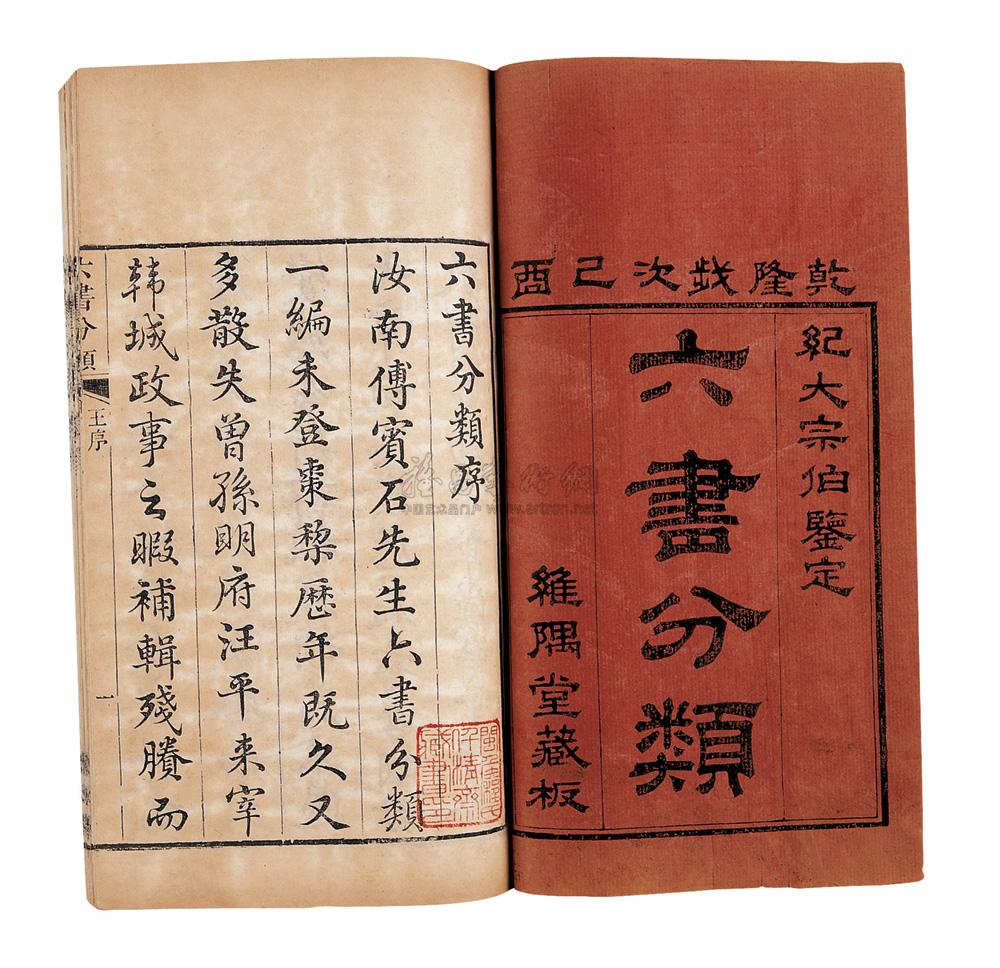 乾隆歲次己酉
紀大宗伯鑒定
六書分類
維隅堂藏板
六書分類序
汝南傅賓石先生六書分類
一編未登棗棃歷年既久又
多散失曾孫明府汪平来宰
韩城政事之暇補輯殘賸而
六書分類
王序
一
www.artron.net